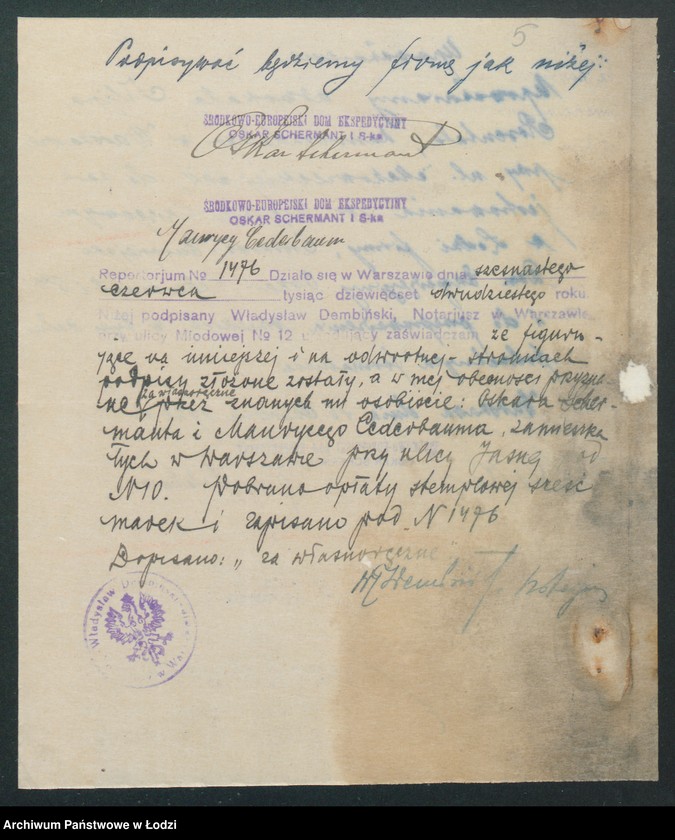 5
Podpisywać będziemy firmę jak niżej:
ŚRODKOWO-EUROPEJSKI DOM EKSPEDYCYJNY
OSKAR SCHERMANT I S-ka
Oskar Schermant
ŚRODKOWO-EUROPEJSKI DOM EKSPEDYCYJNY
OSKAR SCHERMANT I S-ka
Maurycy Cederbaum
Repertorjum No 1476 Działo się w Warszawie dnia szesnastego
czerwca tysiąc dziewięćset dwudziestego roku.
Niżej podpisany Władysław Dembiński, Notarjusz w Warszawie,
przy ulicy Miodowej No 12 zaświadczam, że figuru-
jące na niniejszej i na odwrotnej stronicach
podpisy złożone zostały, a w mej obecności przyzna-
za własnoręczne
ne przez znanych mi osobiście: Oskara Scher-
manta i Maurycego Cederbauma, zamieszka
łych w Warszawie przy ulicy Jasnej pod
N10. Pobrano opłaty stemplowej sześć
marek i zapisano pod N 1476
Dopisano: „za własnoręczne"
Władysław
w W
Archiwum Państwowe w Łodzi